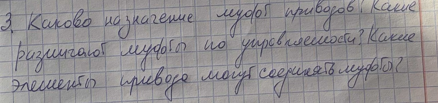 3. Каково назначение муфт приводов? Какие
различают муфты по управляемости? Какие
элементы привода могут соединять муфты?